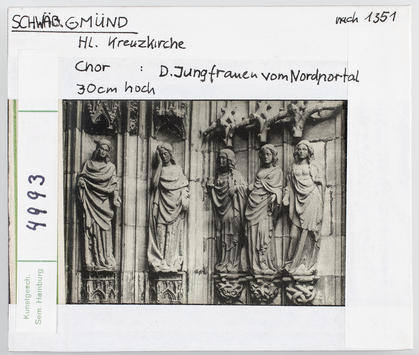 SCHWÄB. GMÜND
nach 1351
Hl. Kreuzkirche
Chor : D. Jungfrauen vom Nordportal
30cm hoch
4993
Kunstgesch.
Sem. Hamburg